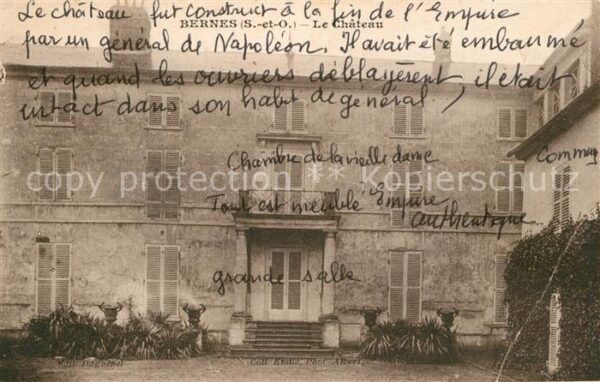 Le château fut construct à la fin de l'Empire
BERNES (S.-et-O.) — Le Château
par un général de Napoléon. Il avait été embaumé
et quand les ouvriers déblayèrent, il était
intact dans son habit de général.
Chambre de la vieille dame
Commun
copyright Kreuzschutz
Tout est meublé Empire
authentique
grande salle
Coll. Phot. Albert